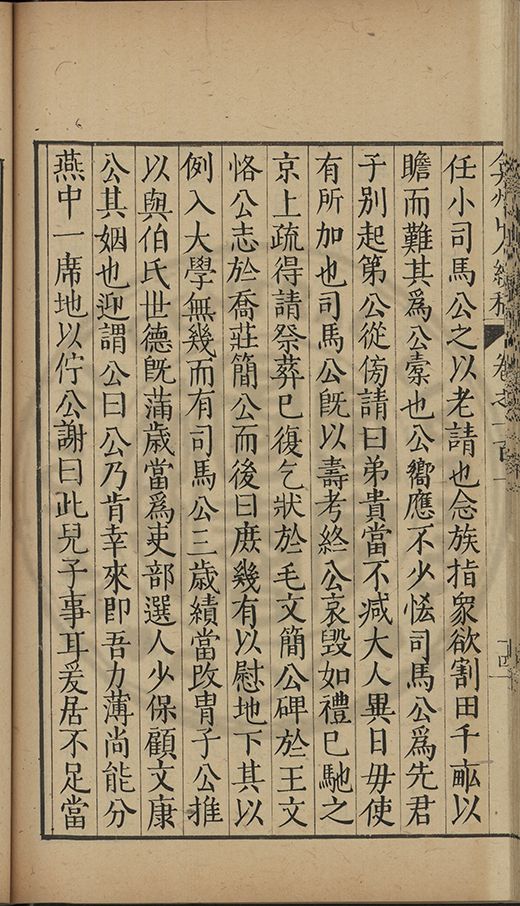 弇州山人續稿 卷之一百一 十四
任小司馬公之以老請也念族指衆欲割田千畝以
贍而難其爲公橐也公嚮應不少恡司馬公爲先君
子別起第公從傍請曰弟貴當不減大人異日毋使
有所加也司馬公旣以壽考終公哀毀如禮已馳之
京上疏得請祭葬已復乞狀於毛文簡公碑於王文
恪公志於喬莊簡公而後曰庻幾有以慰地下其以
例入大學無幾而有司馬公三歲績當改胄子公推
以與伯氏世德旣蒲歲當爲吏部選人少保顧文康
公其姻也迎謂公曰公乃肯幸來即吾力薄尚能分
燕中一席地以佇公謝曰此兒子事耳爰居不足當